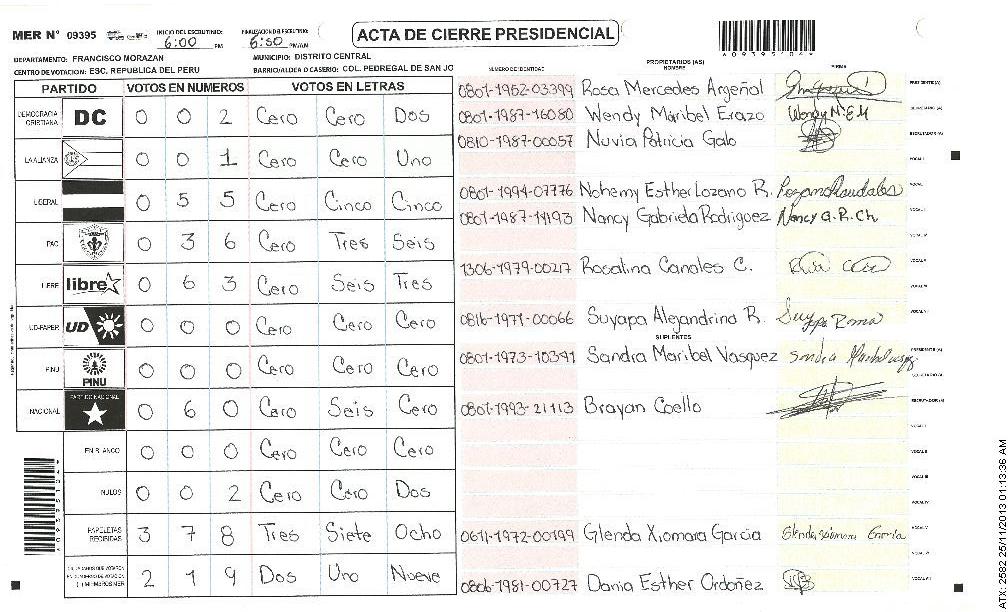 MER N° 09395 INICIO DEL ESCRUTINIO: 6:00 PM FINALIZACION DEL ESCRUTINIO: 6:50 PM/AM
ACTA DE CIERRE PRESIDENCIAL
DEPARTAMENTO: FRANCISCO MORAZAN MUNICIPIO: DISTRITO CENTRAL
CENTRO DE VOTACION: ESC. REPUBLICA DEL PERU BARRIO/ALDEA O CASERIO: COL. PEDREGAL DE SAN JO
PARTIDO VOTOS EN NUMEROS VOTOS EN LETRAS
DEMOCRACIA CRISTIANA DC 0 0 2 Cero Cero Dos
LA ALIANZA 0 0 1 Cero Cero Uno
LIBERAL 0 5 5 Cero Cinco Cinco
PAC 0 3 6 Cero Tres Seis
LIBRE libre 0 6 3 Cero Seis Tres
UD-FAPER UD 0 0 0 Cero Cero Cero
PINU PINU 0 0 0 Cero Cero Cero
NACIONAL PARTIDO NACIONAL 0 6 0 Cero Seis Cero
EN BLANCO 0 0 0 Cero Cero Cero
NULOS 0 0 2 Cero Cero Dos
PAPELETAS RECIBIDAS 3 7 8 Tres Siete Ocho
2 1 9 Dos Uno Nueve
NUMERO DE IDENTIDAD PROPIETARIOS (AS) NOMBRE FIRMA
0801-1952-03399 Rosa Mercedes Argeñol
0801-1987-16080 Wendy Maribel Erazo Wendy M. E M
0810-1987-00057 Nuvia Patricia Galo
0801-1994-07776 Nohemy Esther Lozano R.
0801-1987-14193 Nancy Gabriela Rodriguez Nancy G. R. Ch
1306-1979-00217 Rosalina Canales C.
0816-1971-00066 Suyapa Alejandrina R.
SUPLENTES
0801-1973-10391 Sandra Maribel Vasquez
0801-1993-21113 Brayan Coello
0611-1972-00199 Glenda Xiomara Garcia
0806-1981-00727 Dania Esther Ordoñez
25/11/2013 01:13:36 AM